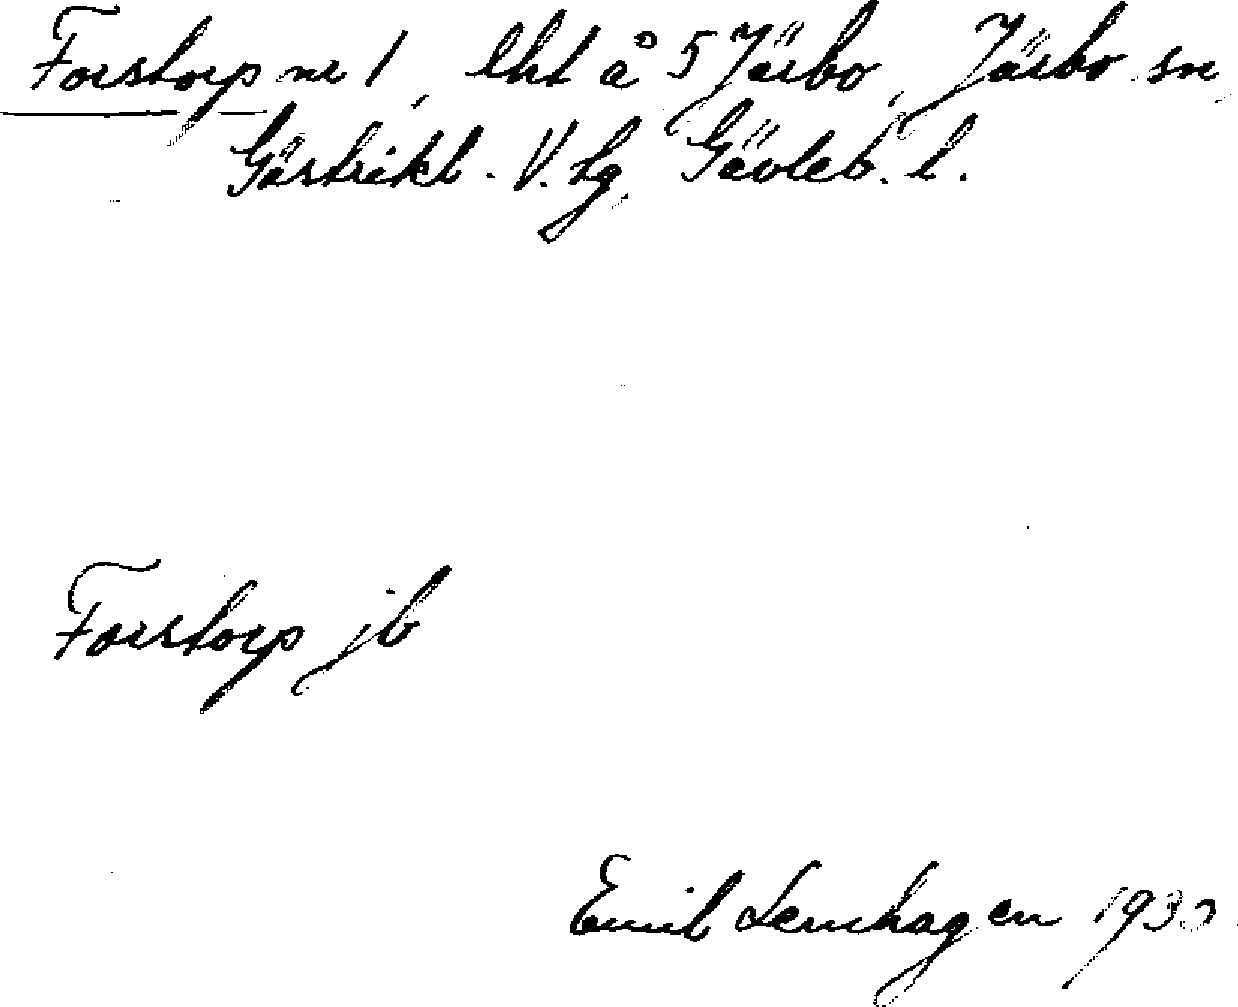 Forstorp nr 1, lht å 5 Järbo, Järbo sn,
Gästrikl. V. tg, Gävleb. l.
Forstorp jb
Emil Lernhagen 1930